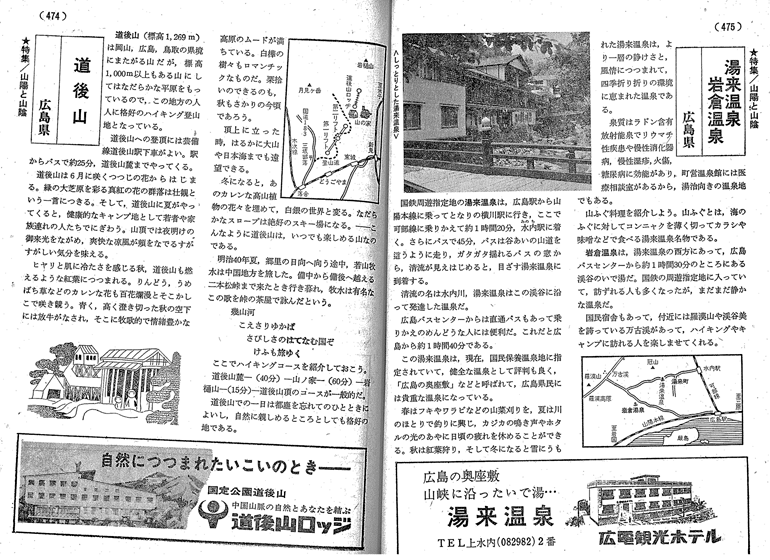 (474)
★特集／山陽と山陰
道後山
広島県
道後山（標高1,269m）
は岡山，広島，鳥取の県境
にまたがる山だが，標高
1,000m以上もある山にし
てはなだらかな平原をもっ
ているので，この地方の人
人に格好のハイキング登山
地となっている。
道後山への登頂には芸備
線道後山駅下車がよい。駅
からバスで約25分，道後山麓までやってくる。
道後山は６月に咲くつつじの花からはじま
る。緑の大芝原を彩る真紅の花の群落は壮観と
いう一言につきる。そして，道後山に夏がやっ
てくると，健康的なキャンプ地として若者や家
族連れの人たちでにぎわう。山頂では夜明けの
御来光をながめ，爽快な涼風が頬をなでるすが
すがしい気分を味える。
ヒヤリと肌に冷たさを感じる秋，道後山も燃
えるような紅葉につつまれる。りんどう，うめ
ばち草などのカレンな花も百花爛漫とそこかし
こで咲き競う。青く，高く澄き切った秋の空下
には放牛がなされ，そこに牧歌的で情緒豊かな
高原のムードが満
ちている。白樺の
樹々もロマンチッ
クなものだ。栗拾
いのできるのも，
秋もさかりの今頃
であろう。
頂上に立った
時，はるかに大山
や日本海までも遠
望できる。
冬になると，あ
のカレンな高山植
物の花々を埋めて，白銀の世界と変る。なだら
かなスロープは絶好のスキー場になる。――こ
んなように道後山は，いつでも楽しめる山なの
である。
明治40年夏，郷里の日向へ向う途中，若山牧
水は中国地方を旅した。備中から備後へ越える
二本松峠まで来たとき行き暮れ，牧水は有名な
この歌を峠の茶屋で詠んだという。
幾山河
こえさりゆかば
さびしさのはてなむ国ぞ
けふも旅ゆく
ここでハイキングコースを紹介しておこう。
道後山麓―（40分）―山ノ家―（60分）―岩
樋山―（15分）―道後山頂のコースが一般的だ。
道後山での一日は都塵を忘れてのひとときに
よいし，自然に親しめるところとしても格好の
地である。
岩樋山
月見ヶ岳
道後山
道後山ロッジ
第二リフト
第一リフト
山の家
登山道
三坂
東城
新見
落合
どうごやま
自然につつまれたいこいのとき――
国定公園道後山
中国山脈の自然とあなたを結ぶ
道後山ロッジ
(475)
★特集／山陽と山陰
湯来温泉
岩倉温泉
広島県
∧しっとりとした湯来温泉∨
国鉄周遊指定地の湯来温泉は，広島駅から山
陽本線に乗ってとなりの横川駅に行き，ここで
可部線に乗りかえて約１時間20分，水内駅に着
く。さらにバスで45分，バスは谷あいの山道を
這うように走り，ガタガタ揺れるバスの窓か
ら，清流が見えはじめると，目ざす湯来温泉に
到着する。
清流の名は水内川，湯来温泉はこの渓谷に沿
って発達した温泉だ。
広島バスセンターからは直通バスもあって乗
りかえのめんどうな人には便利だ。これだと広
島から約１時間40分である。
この湯来温泉は，現在，国民保養温泉地に指定
されていて，健全な温泉として評判も良く，
「広島の奥座敷」などと呼ばれて，広島県民に
は貴重な温泉になっている。
春はフキやワラビなどの山菜刈りを，夏は川
のほとりで釣りに興じ，カジカの鳴き声やホタ
ルの光のあやに日頃の疲れを休めることができ
る。秋は紅葉狩り，そして冬になると雪にうも
れた湯来温泉は，よ
り一層の静けさと，
風情につつまれて，
四季折り折りの環境
に恵まれた温泉であ
る。
泉質はラドン含有
放射能泉でリウマチ
性疾患や慢性消化器
病，慢性湿疹，火傷，
糖尿病に効能があり，町営温泉館には医
療相談室があるから，湯治向きの温泉地
でもある。
山ふぐ料理を紹介しよう。山ふぐとは，海の
ふぐに対してコンニャクを薄く切ってカラシや
味噌などで食べる湯来温泉名物である。
岩倉温泉は，湯来温泉の西方にあって，広島
バスセンターから約１時間30分のところにある
渓谷のいで湯だ。国鉄の周遊指定地に入ってい
て，訪ずれる人も多くなったが，まだまだ静か
な温泉だ。
国民宿舎もあって，付近には羅漢山や渓谷美
を誇っている万古渓があって，ハイキングやキ
ャンプに訪れる人を楽しませてくれる。
冠山
水内駅
羅漢山
万古渓
湯来町
湯来温泉
羅漢高原
岩倉温泉
可部線
山陽本線
広島駅
至岩国
厳島
広島の奥座敷
山峡に沿ったいで湯…
湯来温泉
TEL上水内（082982）2番
広電観光ホテル